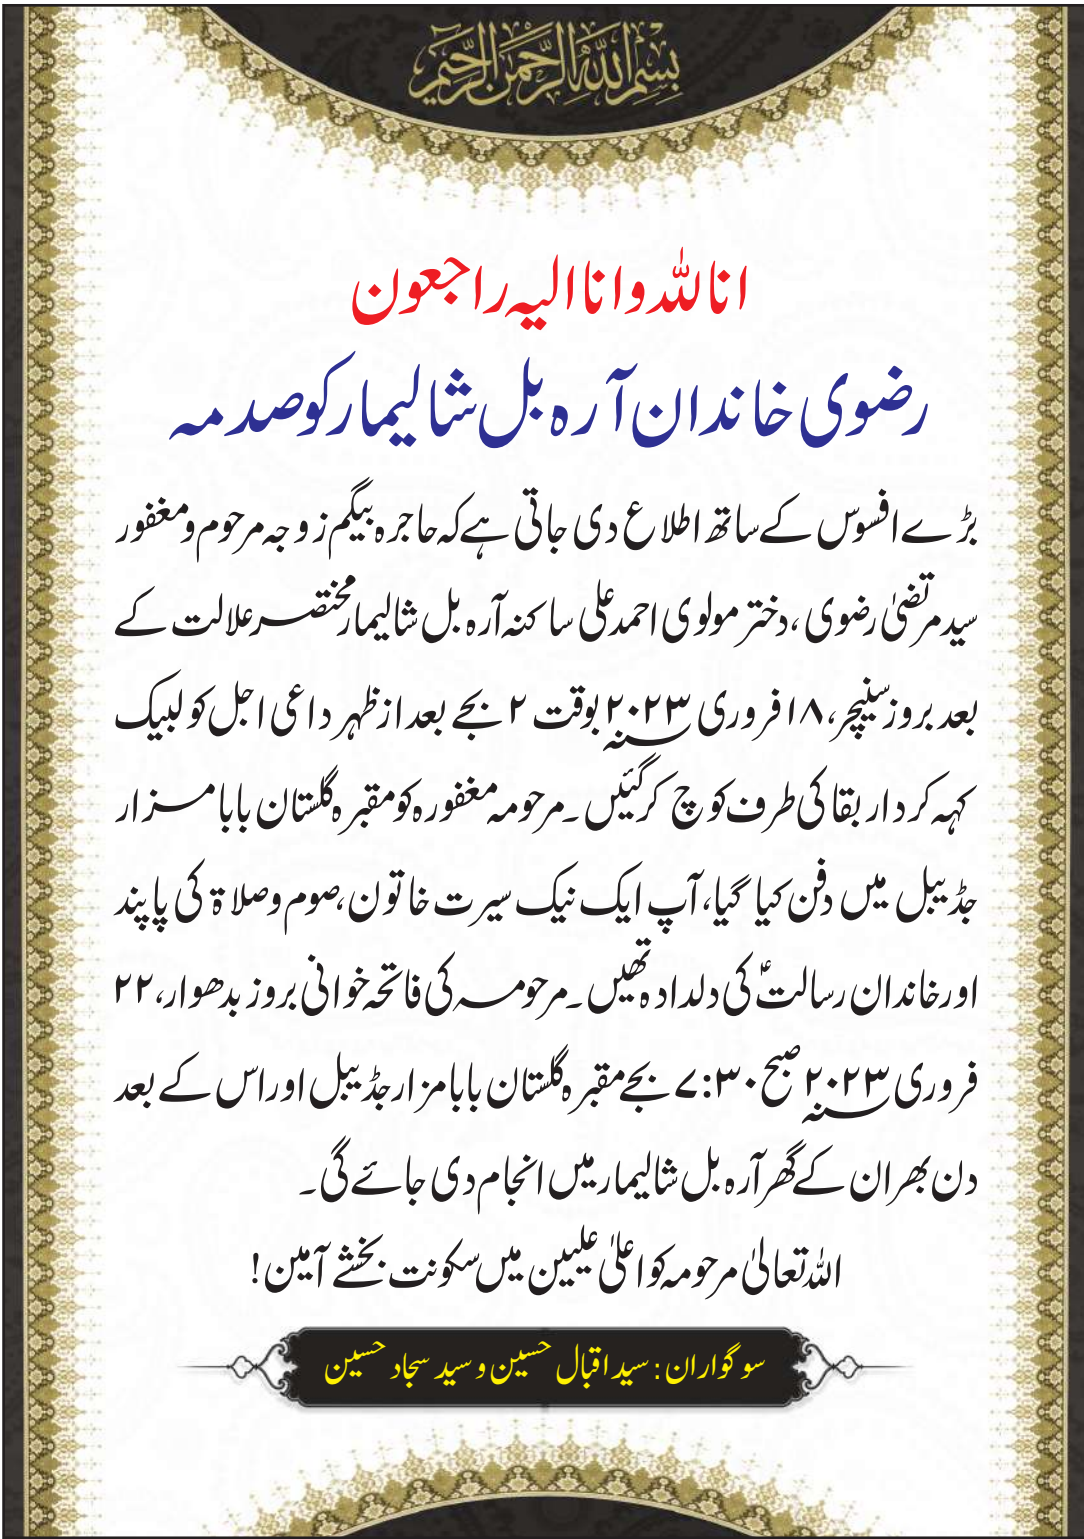 بسم اللہ الرحمن الرحیم
انا للہ وانا الیہ راجعون
رضوی خاندان آرہ بل شالیمار کو صدمہ
بڑے افسوس کے ساتھ اطلاع دی جاتی ہے کہ حاجرہ بیگم زوجہ مرحوم و مغفور
سید مرتضیٰ رضوی، دختر مولوی احمد علی ساکنہ آرہ بل شالیمار مختصر علالت کے
بعد بروز سنیچر، ۱۸ فروری ۲۰۲۳؁ بوقت ۲ بجے بعد از ظہر داعی اجل کو لبیک
کہہ کر دار بقا کی طرف کوچ کر گئیں۔ مرحومہ مغفورہ کو مقبرہ گلستان بابا مزار
جڈیبل میں دفن کیا گیا، آپ ایک نیک سیرت خاتون، صوم و صلاۃ کی پاپند
اور خاندان رسالتؑ کی دلدادہ تھیں۔ مرحومہ کی فاتحہ خوانی بروز بدھوار، ۲۲
فروری ۲۰۲۳؁ صبح ۷:۳۰ بجے مقبرہ گلستان بابا مزار جڈیبل اور اس کے بعد
دن بھر ان کے گھر آرہ بل شالیمار میں انجام دی جائے گی۔
اللہ تعالیٰ مرحومہ کو اعلیٰ علیین میں سکونت بخشے آمین!
سوگواران: سید اقبال حسین و سید سجاد حسین